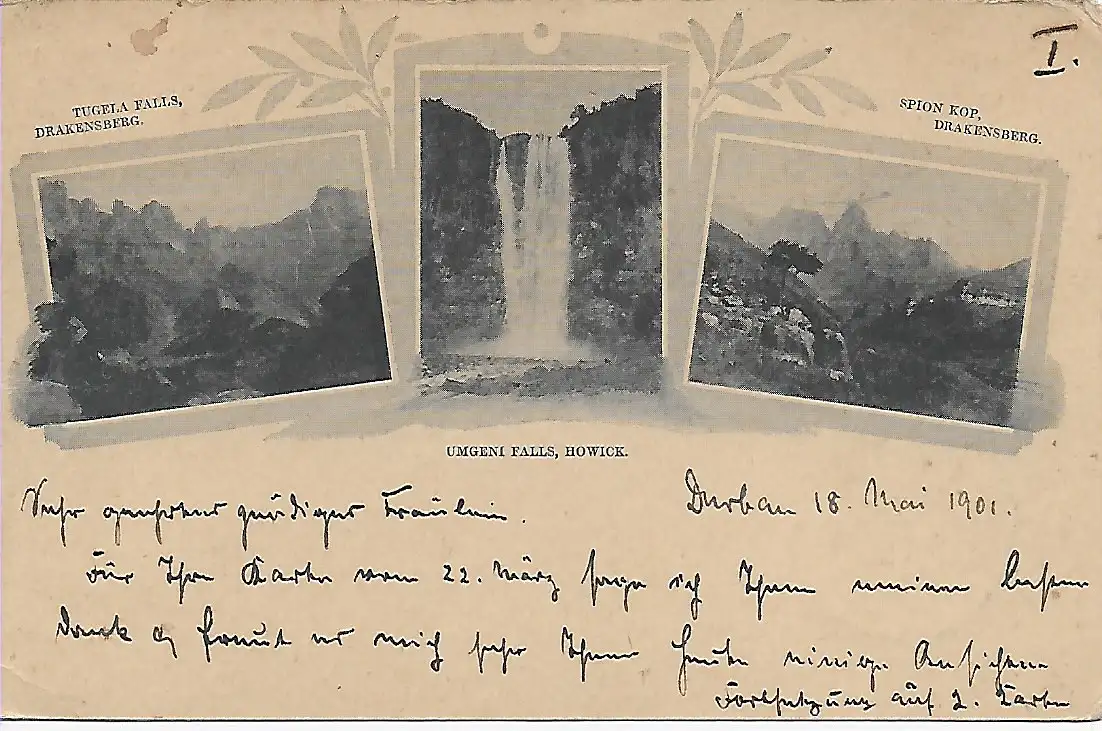 I.
TUGELA FALLS,
DRAKENSBERG.
SPION KOP,
DRAKENSBERG.
UMGENI FALLS, HOWICK.
Durban 18. Mai 1901.
Sehr geehrtes gnädiges Fräulein.
Für Ihre Karte vom 22. März sage ich Ihnen meinen besten
Dank & freut es mich sehr Ihnen heute einige Ansichten
Fortsetzung auf 2. Karte